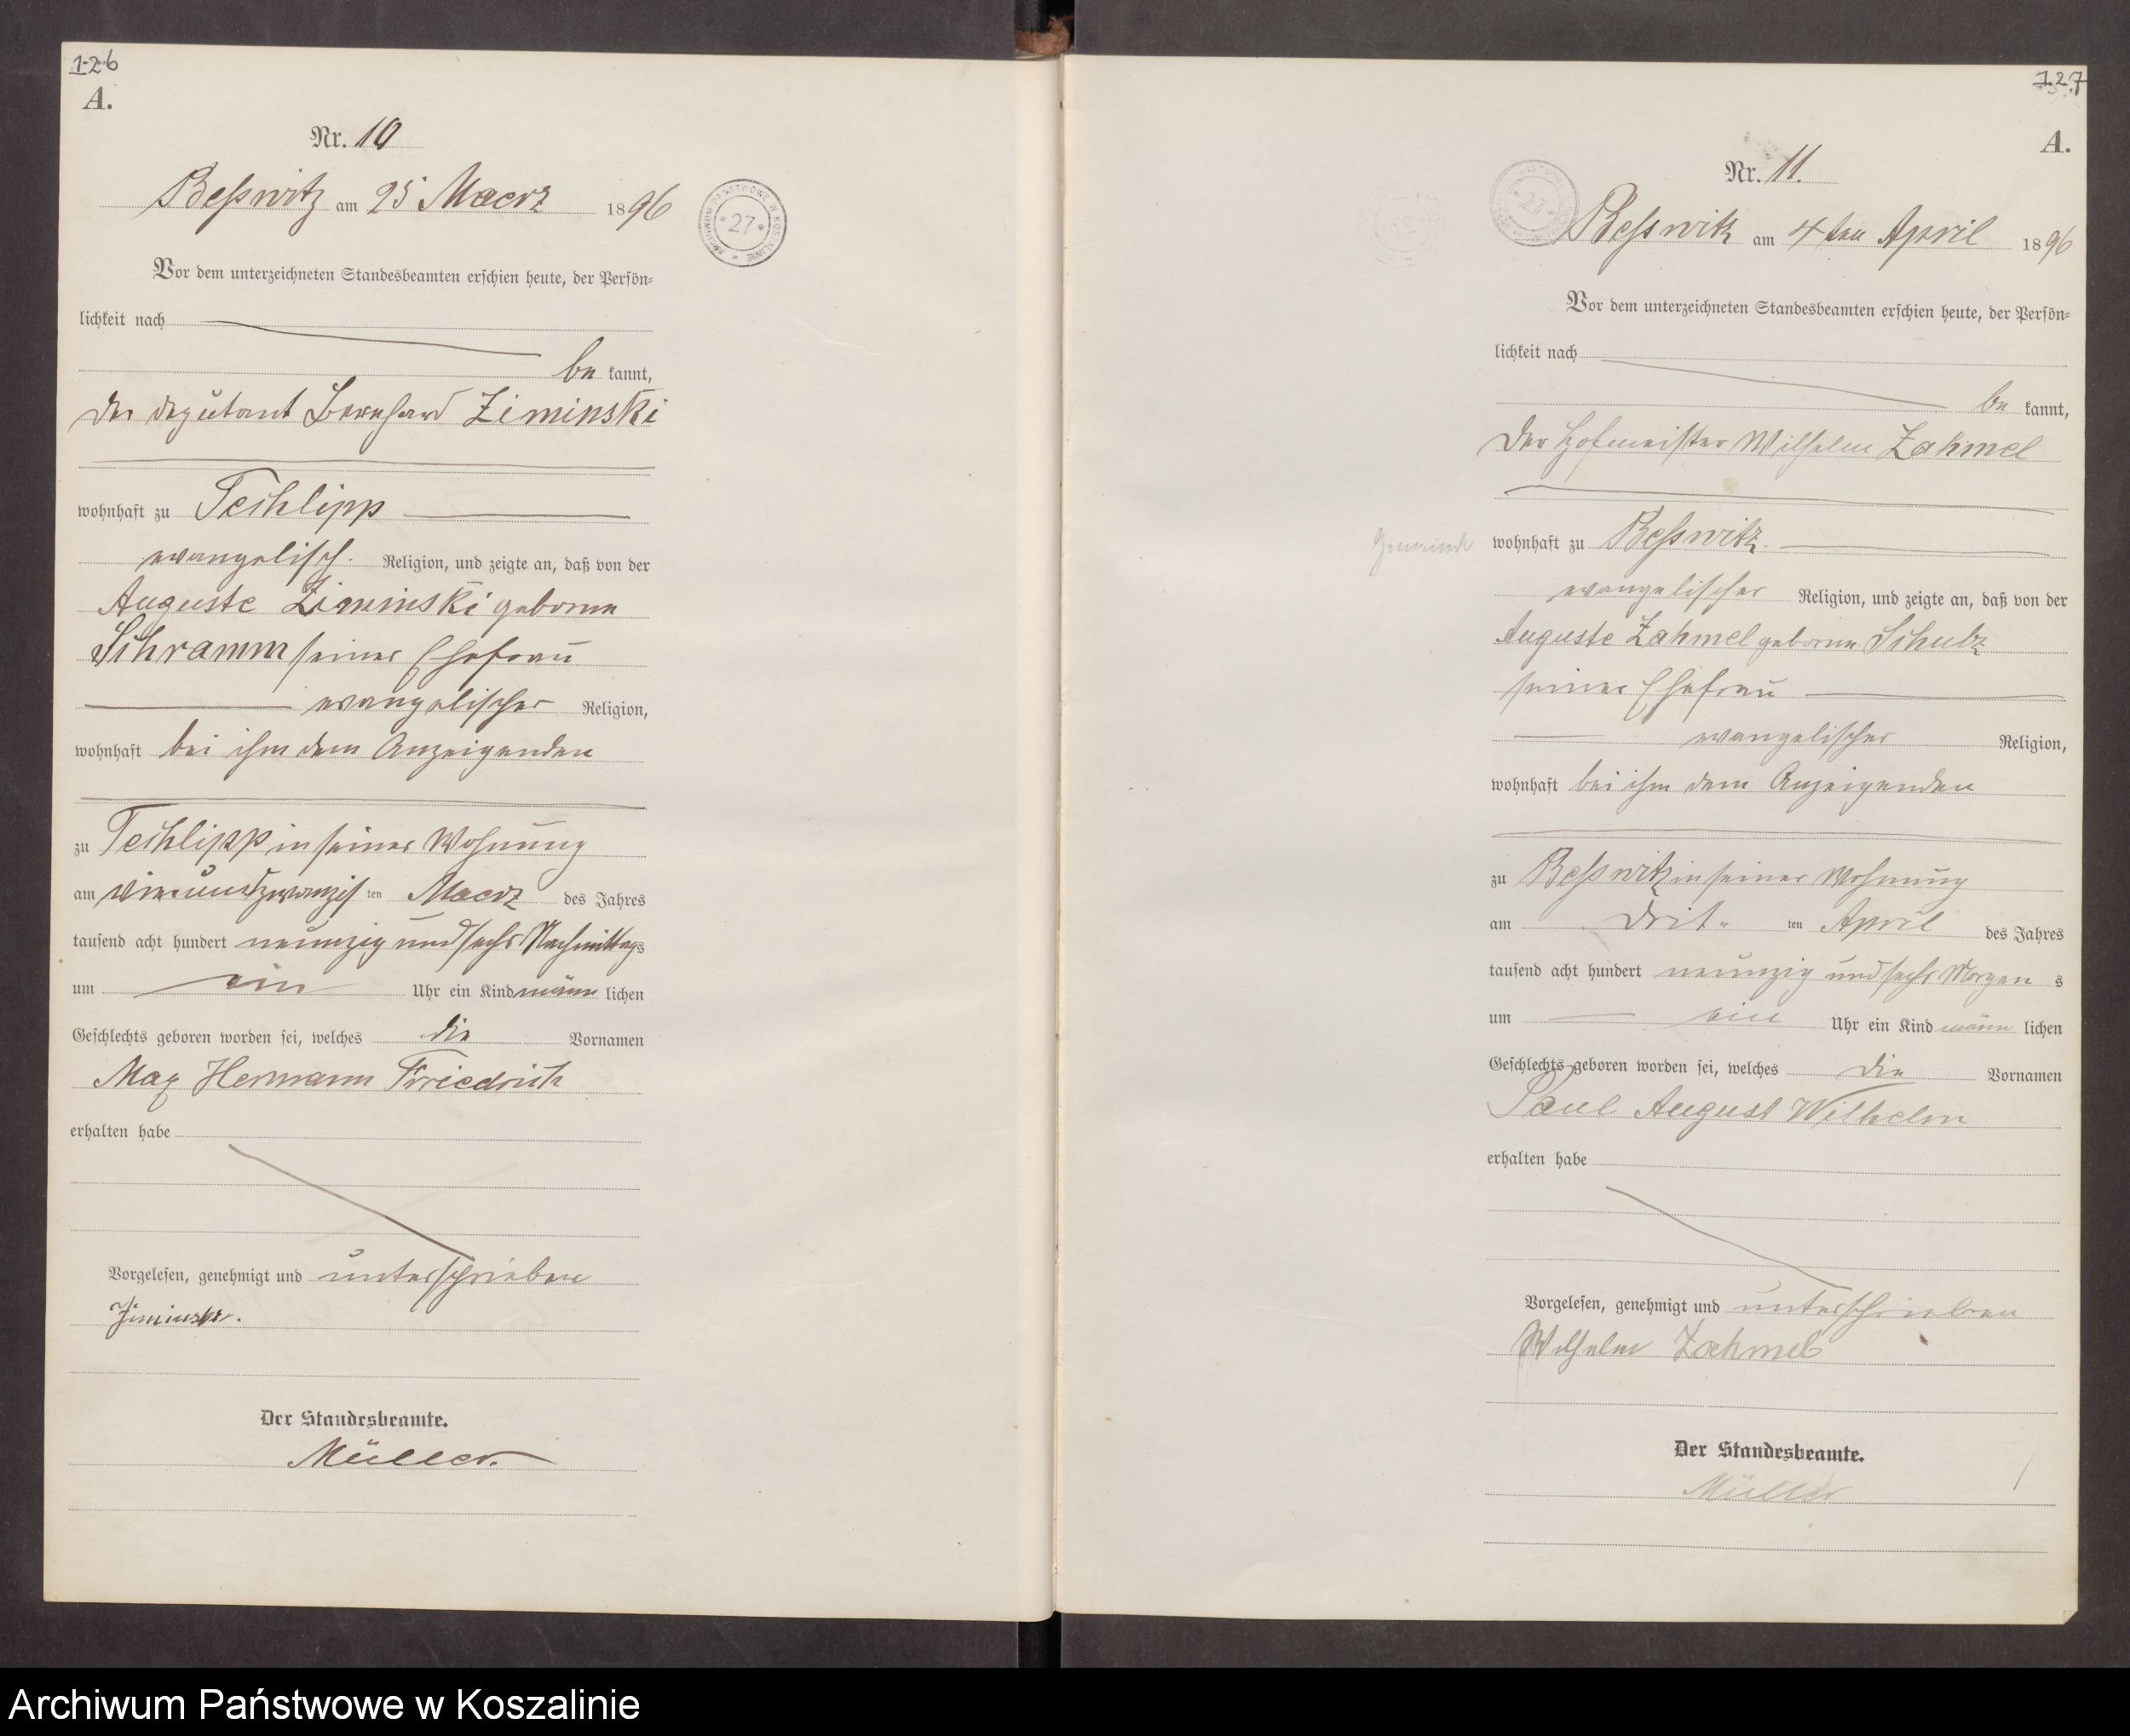 126
A.
Nr. 10
Beßwitz am 25 Maerz 1896
Vor dem unterzeichneten Standesbeamten erschien heute, der Persön-
lichkeit nach
be kannt,
der deputant Bernhard Ziminski
wohnhaft zu Techlipp
evangelisch. Religion, und zeigte an, daß von der
Auguste Ziminski geborne
Schramm seiner Ehefrau
evangelischer Religion,
wohnhaft bei ihm dem Anzeigenden
zu Techlipp in seiner Wohnung
am vierundzwanzigs ten Maerz des Jahres
tausend acht hundert neunzig und sechs Nachmittags
um ein Uhr ein Kind männ lichen
Geschlechts geboren worden sei, welches die Vornamen
Max Hermann Friedrich
erhalten habe
Vorgelesen, genehmigt und unterschrieben
Ziminski.
Der Standesbeamte.
Müller.
ARCHIWUM PAŃSTWOWE W KOSZALINIE
* 27 *
127
A.
Nr. 11.
Beßwitz am 4ten April 1896
Vor dem unterzeichneten Standesbeamten erschien heute, der Persön-
lichkeit nach
be kannt,
Der Hofmeister Wilhelm Zahmel
Gemeinde
wohnhaft zu Beßwitz.
evangelischer Religion, und zeigte an, daß von der
Auguste Zahmel geborne Schulz
seiner Ehefrau
evangelischer Religion,
wohnhaft bei ihm dem Anzeigenden
zu Beßwitz in seiner Wohnung
am Drit ten April des Jahres
tausend acht hundert neunzig und sechs Morgen s
um ein Uhr ein Kind männ lichen
Geschlechts geboren worden sei, welches die Vornamen
Paul August Wilhelm
erhalten habe
Vorgelesen, genehmigt und unterschrieben
Wilhelm Zahmel
Der Standesbeamte.
Müller
Archiwum Państwowe w Koszalinie